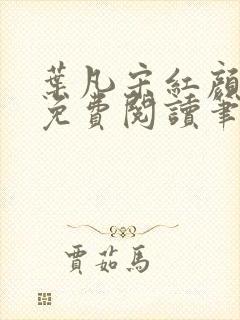 葉凡宋紅顏
免費閱讀筆
賈茹馬